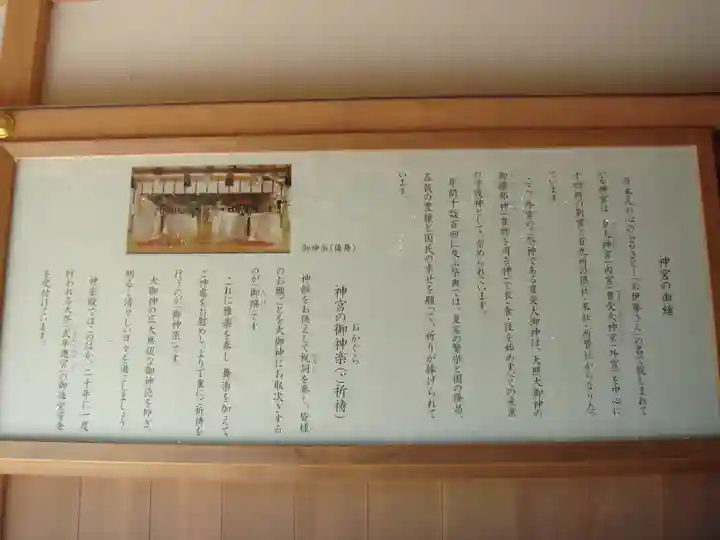 神宮の由緒
日本人の心のふるさと―「お伊勢さん」の名で親しまれて
いる神宮は、皇大神宮(内宮)・豊受大神宮(外宮)を中心に
十四所の別宮と百九所の摂社・末社・所管社からなりたっ
ています。
ここ、外宮のご祭神である豊受大御神は、天照大御神の
御饌都神(食物を司る神)で衣・食・住を始めすべての産業
の守護神として、崇められています。
年間千数百回に及ぶ祭典では、皇室の繁栄と国の隆昌、
五穀の豊穣と国民の幸せを願って、祈りが捧げられて
います。
御神楽(倭舞)
おかぐら
神宮の御神楽(ご祈祷)
神饌をお供えして祝詞を奏し、皆様
のお願いごとを大御神にお取次ぎする
のが「御饌」です。
これに雅楽を奏し、舞楽を加えて
ご神慮をお慰めし、より丁重にご祈祷を
行うのが「御神楽」です。
大御神の広大無辺な御神徳を仰ぎ、
明るく清々しい日々を過ごしましょう。
神楽殿ではこのほか、二十年に一度
行われる大祭「式年遷宮」の御造営資金
を受付けています。